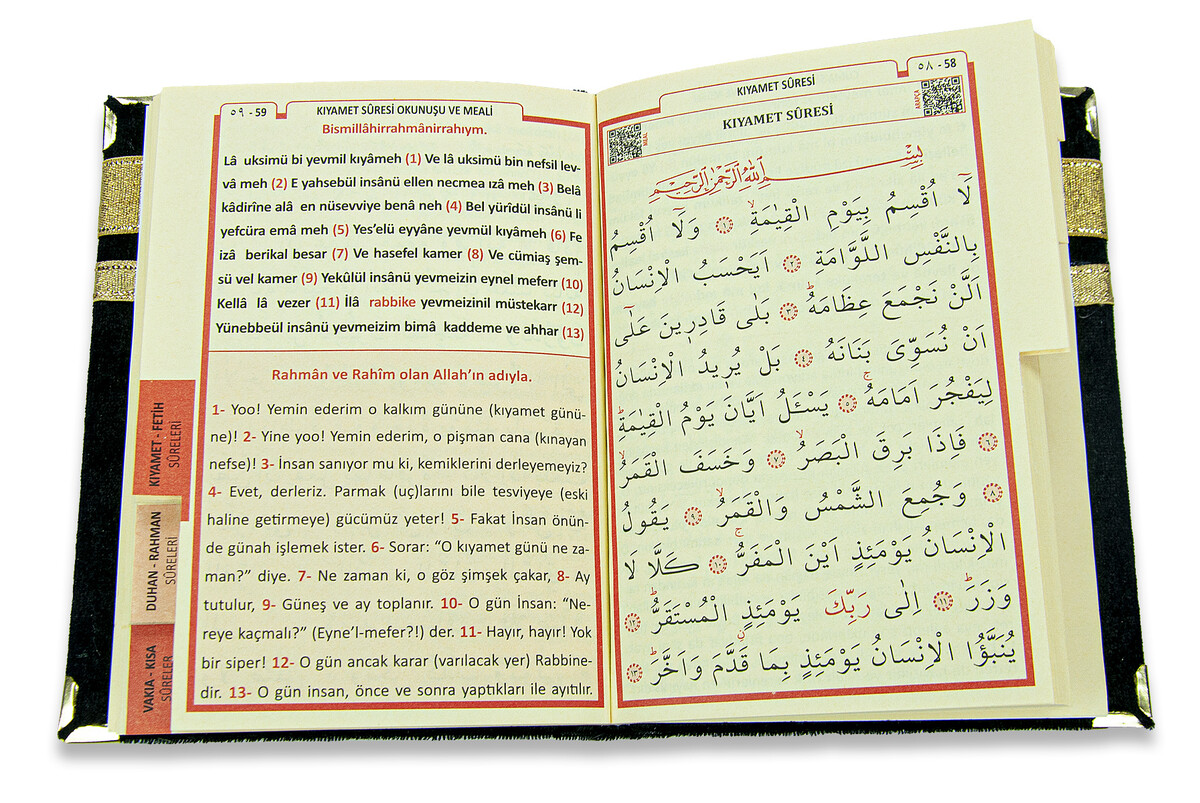 ٥٩ - 59
KIYAMET SÛRESİ OKUNUŞU VE MEALİ
Bismillâhirrahmânirrahıym.
Lâ uksimü bi yevmil kıyâmeh (1) Ve lâ uksimü bin nefsil lev-
vâ meh (2) E yahsebül insânü ellen necmea ızâ meh (3) Belâ
kâdirîne alâ en nüsevviye benâ neh (4) Bel yürîdül insânü li
yefcüra emâ meh (5) Yes'elü eyyâne yevmül kıyâmeh (6) Fe
izâ berikal besar (7) Ve hasefel kamer (8) Ve cümiaş şem-
sü vel kamer (9) Yekûlül insânü yevmeizin eynel meferr (10)
Kellâ lâ vezer (11) İlâ rabbike yevmeizinil müstekarr (12)
Yünebbeül insânü yevmeizim bimâ kaddeme ve ahhar (13)
Rahmân ve Rahîm olan Allah'ın adıyla.
1- Yoo! Yemin ederim o kalkım gününe (kıyamet günü-
ne)! 2- Yine yoo! Yemin ederim, o pişman cana (kınayan
nefse)! 3- İnsan sanıyor mu ki, kemiklerini derleyemeyiz?
4- Evet, derleriz. Parmak (uç)larını bile tesviyeye (eski
haline getirmeye) gücümüz yeter! 5- Fakat İnsan önün-
de günah işlemek ister. 6- Sorar: “O kıyamet günü ne za-
man?” diye. 7- Ne zaman ki, o göz şimşek çakar, 8- Ay
tutulur, 9- Güneş ve ay toplanır. 10- O gün İnsan: “Ne-
reye kaçmalı?” (Eyne'l-mefer?!) der. 11- Hayır, hayır! Yok
bir siper! 12- O gün ancak karar (varılacak yer) Rabbine-
dir. 13- O gün insan, önce ve sonra yaptıkları ile ayıtılır.
KIYAMET - FETİH
SÛRELERİ
DUHAN - RAHMAN
SÛRELERİ
VAKIA - KISA
SÛRELER
KIYAMET SÛRESİ
٥٨ - 58
MEAL
KIYAMET SÛRESİ
ARAPÇA
بِسْمِ اللّٰهِ الرَّحْمٰنِ الرَّحٖيمِ
لَٓا اُقْسِمُ بِيَوْمِ الْقِيٰمَةِۙ ﴿١﴾ وَلَٓا اُقْسِمُ
بِالنَّفْسِ اللَّوَّامَةِ ﴿٢﴾ اَيَحْسَبُ الْاِنْسَانُ
اَلَّنْ نَجْمَعَ عِظَامَهُؕ ﴿٣﴾ بَلٰى قَادِرٖينَ عَلٰٓى
اَنْ نُسَوِّىَ بَنَانَهُ ﴿٤﴾ بَلْ يُرٖيدُ الْاِنْسَانُ
لِيَفْجُرَ اَمَامَهُۚ ﴿٥﴾ يَسْـَٔلُ اَيَّانَ يَوْمُ الْقِيٰمَةِؕ
﴿٦﴾ فَاِذَا بَرِقَ الْبَصَرُۙ ﴿٧﴾ وَخَسَفَ الْقَمَرُۙ
﴿٨﴾ وَجُمِعَ الشَّمْسُ وَالْقَمَرُۙ ﴿٩﴾ يَقُولُ
الْاِنْسَانُ يَوْمَئِذٍ اَيْنَ الْمَفَرُّۚ ﴿١٠﴾ كَلَّا لَا
وَزَرَؕ ﴿١١﴾ اِلٰى رَبِّكَ يَوْمَئِذٍ الْمُسْتَقَرُّؕ ﴿١٢﴾
يُنَبَّؤُا الْاِنْسَانُ يَوْمَئِذٍ بِمَا قَدَّمَ وَاَخَّرَؕ ﴿١٣﴾